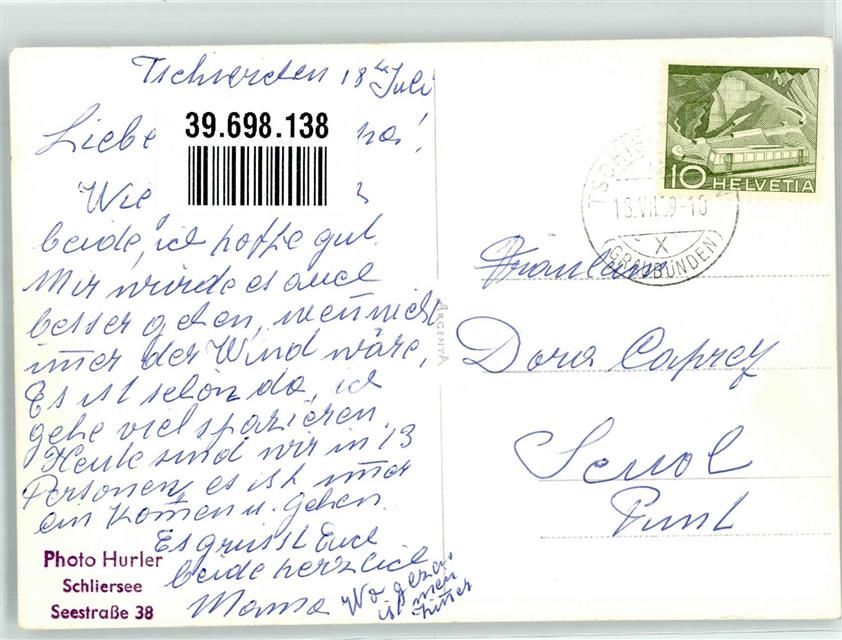 Tschierschen 18te Juli
39.698.138
Liebe
Wie
beide, ich hoffe gut.
Mir würde es auch
besser gehen, wenn nicht
imer der Wind wäre,
Es ist schön da, ich
gehe viel spazieren.
Heute sind wir in 13
Personen, es ist imer
ein Komen u. gehen.
Es grüsst Euch
beide herzlich
Mama
Wo
ist mein
Zimer
Photo Hurler
Schliersee
Seestraße 38
ARGENTA
10 HELVETIA
18.VII.59-10
X
(GRAUBÜNDEN)
Fräulein
Dora Caprez
Scuol
Punt